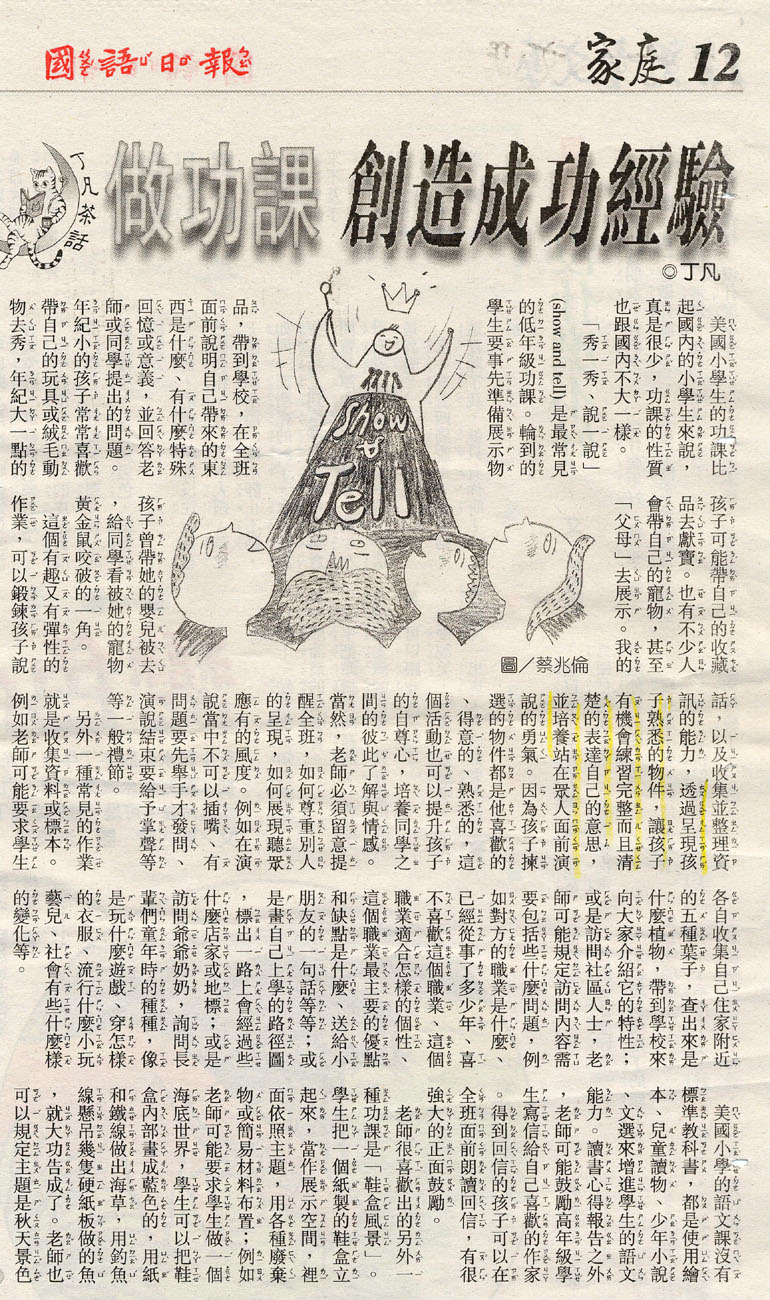 國語日報
家庭 12
做功課 創造成功經驗
丁凡茶話
◎丁凡
美國小學生的功課比
起國內的小學生來說，
真是很少，功課的性質
也跟國內不大一樣。
「秀一秀、說一說」
(show and tell) 是最常見
的低年級功課。輪到的
學生要事先準備展示物
品，帶到學校，在全班
面前說明自己帶來的東
西是什麼、有什麼特殊
回憶或意義，並回答老
師或同學提出的問題。
年紀小的孩子常常喜歡
帶自己的玩具或絨毛動
物去秀，年紀大一點的
Show
&
Tell
圖／蔡兆倫
孩子可能帶自己的收藏
品去獻寶。也有不少人
會帶自己的寵物，甚至
「父母」去展示。我的
孩子曾帶她的嬰兒被去
，給同學看被她的寵物
黃金鼠咬破的一角。
這個有趣又有彈性的
作業，可以鍛鍊孩子說
話，以及收集並整理資
訊的能力，透過呈現孩
子熟悉的物件，讓孩子
有機會練習完整而且清
楚的表達自己的意思，
並培養站在眾人面前演
說的勇氣。因為孩子揀
選的物件都是他喜歡的
、得意的、熟悉的，這
個活動也可以提升孩子
的自尊心，培養同學之
間的彼此了解與情感。
當然，老師必須留意提
醒全班，如何尊重別人
的呈現，如何展現聽眾
應有的風度。例如在演
說當中不可以插嘴、有
問題要先舉手才發問、
演說結束要給予掌聲等
等一般禮節。
另外一種常見的作業
就是收集資料或標本。
例如老師可能要求學生
各自收集自己住家附近
的五種葉子，查出來是
什麼植物，帶到學校來
向大家介紹它的特性；
或是訪問社區人士，老
師可能規定訪問內容需
要包括些什麼問題，例
如對方的職業是什麼、
已經從事了多少年、喜
不喜歡這個職業、這個
職業適合怎樣的個性、
這個職業最主要的優點
和缺點是什麼、送給小
朋友的一句話等等；或
是畫自己上學的路徑圖
，標出一路上會經過些
什麼店家或地標；或是
訪問爺爺奶奶，詢問長
輩們童年時的種種，像
是玩什麼遊戲、穿怎樣
的衣服、流行什麼小玩
藝兒、社會有些什麼樣
的變化等。
美國小學的語文課沒有
標準教科書，都是使用繪
本、兒童讀物、少年小說
、文選來增進學生的語文
能力。讀書心得報告之外
，老師可能鼓勵高年級學
生寫信給自己喜歡的作家
。得到回信的孩子可以在
全班面前朗讀回信，有很
強大的正面鼓勵。
老師很喜歡出的另外一
種功課是「鞋盒風景」。
學生把一個紙製的鞋盒立
起來，當作展示空間，裡
面依照主題，用各種廢棄
物或簡易材料布置；例如
老師可能要求學生做一個
海底世界，學生可以把鞋
盒內部畫成藍色的，用紙
和鐵線做出海草，用釣魚
線懸吊幾隻硬紙板做的魚
，就大功告成了。老師也
可以規定主題是秋天景色